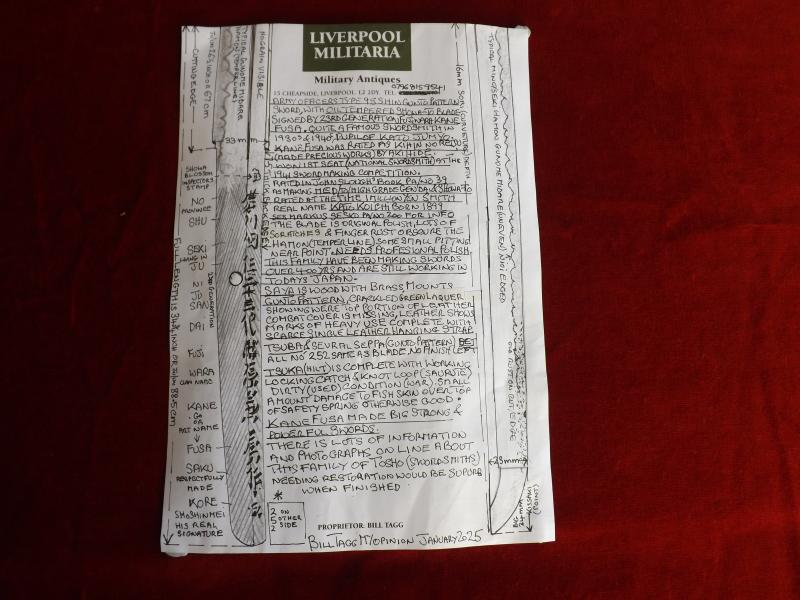 LIVERPOOL
MILITARIA
Military Antiques
15 CHEAPSIDE, LIVERPOOL L2 2DY. TEL
ARMY OFFICERS TYPE 95 SHIN GUNTO PATTERN
SWORD, WITH OIL TEMPERED SHOWA-TO BLADE
SIGNED BY 23RD GENERATION FUJIWARA KANE
FUSA. QUITE A FAMOUS SWORDSMITH IN
1930s & 1940s, PUPIL OF KATO JUMYO.
KANE FUSA WAS RATED AS KIHIN NO RETSU
(MADE PRECIOUS WORKS) BY AKIHIDE.
WON 1ST SEAT (NATIONAL SWORDSMITH) AT THE
1941 SWORD MAKING COMPETITION.
RATED IN JOHN SLOUGHS BOOK PA/NO 39
AS MAKING MED/TO/HIGH GRADE GENDAI & SHOWA-TO
RATED AT THE TIME 1 MILLION YEN SMITH
REAL NAME KATO KOICHI BORN 1899
SES MARKUS SESKO PA/NO 200 FOR INFO
THE BLADE IS ORIGINAL POLISH, LOTS OF
SCRATCHES & FINGER RUST OBSCURE THE
HAMON (TEMPER LINE) SOME SMALL PITTING
NEAR POINT. NEEDS PROFESIONAL POLISH.
THIS FAMILY HAVE BEEN MAKING SWORDS
OVER 400 YRS AND ARE STILL WORKING IN
TODAYS JAPAN.
SAYA IS WOOD WITH BRASS MOUNTS
GUNTO PATTERN, CRACKLED GREEN LAQUER
SHOWING WERE TOP PORTION OF LEATHER
COMBAT COVER IS MISSING, LEATHER SHOWS
MARKS OF HEAVY USE COMPLETE WITH
SCARCE SINGLE LEATHER HANGING STRAP
TSUBA & SEVRAL SEPPA (GUNTO PATTERN)
ALL NO 252 SAME AS BLADE NO FINISH LEFT
TSUKA (HILT) IS COMPLETE WITH WORKING
LOCKING CATCH & KNOT LOOP (SARUTE)
DIRTY (USED) CONDITION (WAR). SMALL
AMOUNT DAMAGE TO FISH SKIN OVER TOP
OF SAFETY SPRING OTHERWISE GOOD.
KANE FUSA MADE BIG STRONG &
POWERFUL SWORDS.
THERE IS LOTS OF INFORMATION
AND PHOTOGRAPHS ON LINE ABOUT
THIS FAMILY OF TOSHO (SWORDSMITHS)
NEEDING RESTORATION WOULD BE SUPURB
WHEN FINISHED
*
252
ON
OTHER
SIDE
PROPRIETOR: BILL TAGG
BILL TAGG MY OPINION JANUARY 2025
CUTTING EDGE
NO GRAIN VISIBLE
33 mm
SHOWA
BLOSSOM
INSPECTORS
STAMP
NO
PROVINCE
SHU
SEKI
JU
NI
JU
SAN
23RD GENERATION
DAI
FUJI
WARA
CLAN NAME
KANE
GO
OR
ART NAME
FUSA
SAKU
RESPECTFULLY
MADE
KORE
SHOSHINMEI
HIS REAL
SIGNATURE
TYPICAL MINO/SEKI HAMON GUNOME MIDARE (UNEVEN) NIOI EDGED
23mm
KISSAKI
(POINT)